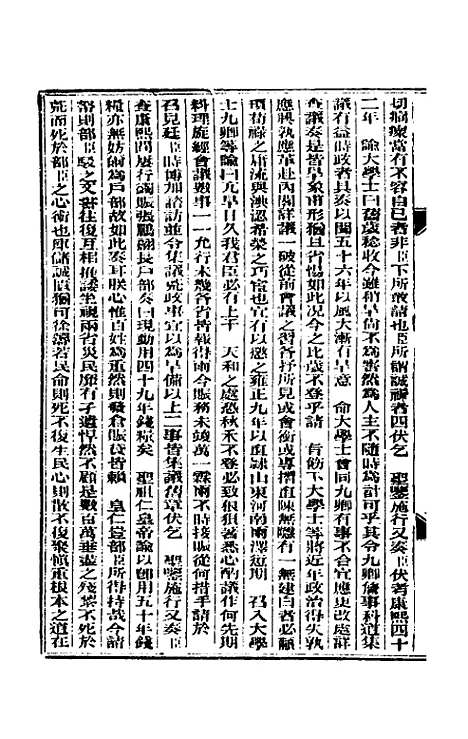 切痌瘝當有不容自已者非臣下所敢請也臣所謂誠禱者四伏乞　聖鑒施行又奏臣伏考康熙四十
二年　諭大學士曰舊歲稔收今雖稍旱尚不為害然為人主不隨時為計可乎其令九卿詹事科道集
議有益時政者具奏以聞五十六年以風大漸有旱意　命大學士會同九卿有事不合宜應更改處詳
查議奏是皆旱象甫形猶且省惕如此況今之比歲不登乎請　旨飭下大學士等將近年政治得失孰
應興孰應革赴內閣詳議一破從前會議之習各抒所見或會銜或專摺直陳無隱有　無建白者必願
瓌苟祿之庸流與淟涊希榮之巧宦也宜有以懲之雍正九年以直隸山東河南雨澤愆期　召入大學
士九卿等諭曰亢旱日久我君臣必有上干　天和之處恐秋禾不登必致狼狽著悉心酌議作何先期
料理旋經會議數事一一允行未幾各省皆報得雨今賑務未竣萬一雲雨不時接賑從何措手請於
召見廷臣時博加諮訪並令集議荒政事宜以為早備以上二事皆集議舊章伏乞　聖鑒施行又奏臣
查康熙間屢行蠲賑張鵬翮長戶部奏曰現動用四十九年錢糧矣　聖祖仁皇帝諭以即用五十年錢
糧亦無妨爾為戶部故如此奏耳朕心惟百姓為重然則發倉賑貸皆賴　皇仁豈部臣所得持哉今請
帑則部臣駁之文書往復互相推諉坐視兩省災民靡有孑遺悍然不顧是數百萬垂盡之殘黎不死於
荒而死於部臣之心術也庫儲誠匱猶可徐源若民命則死不復生民心則散不復聚慎重根本之道在